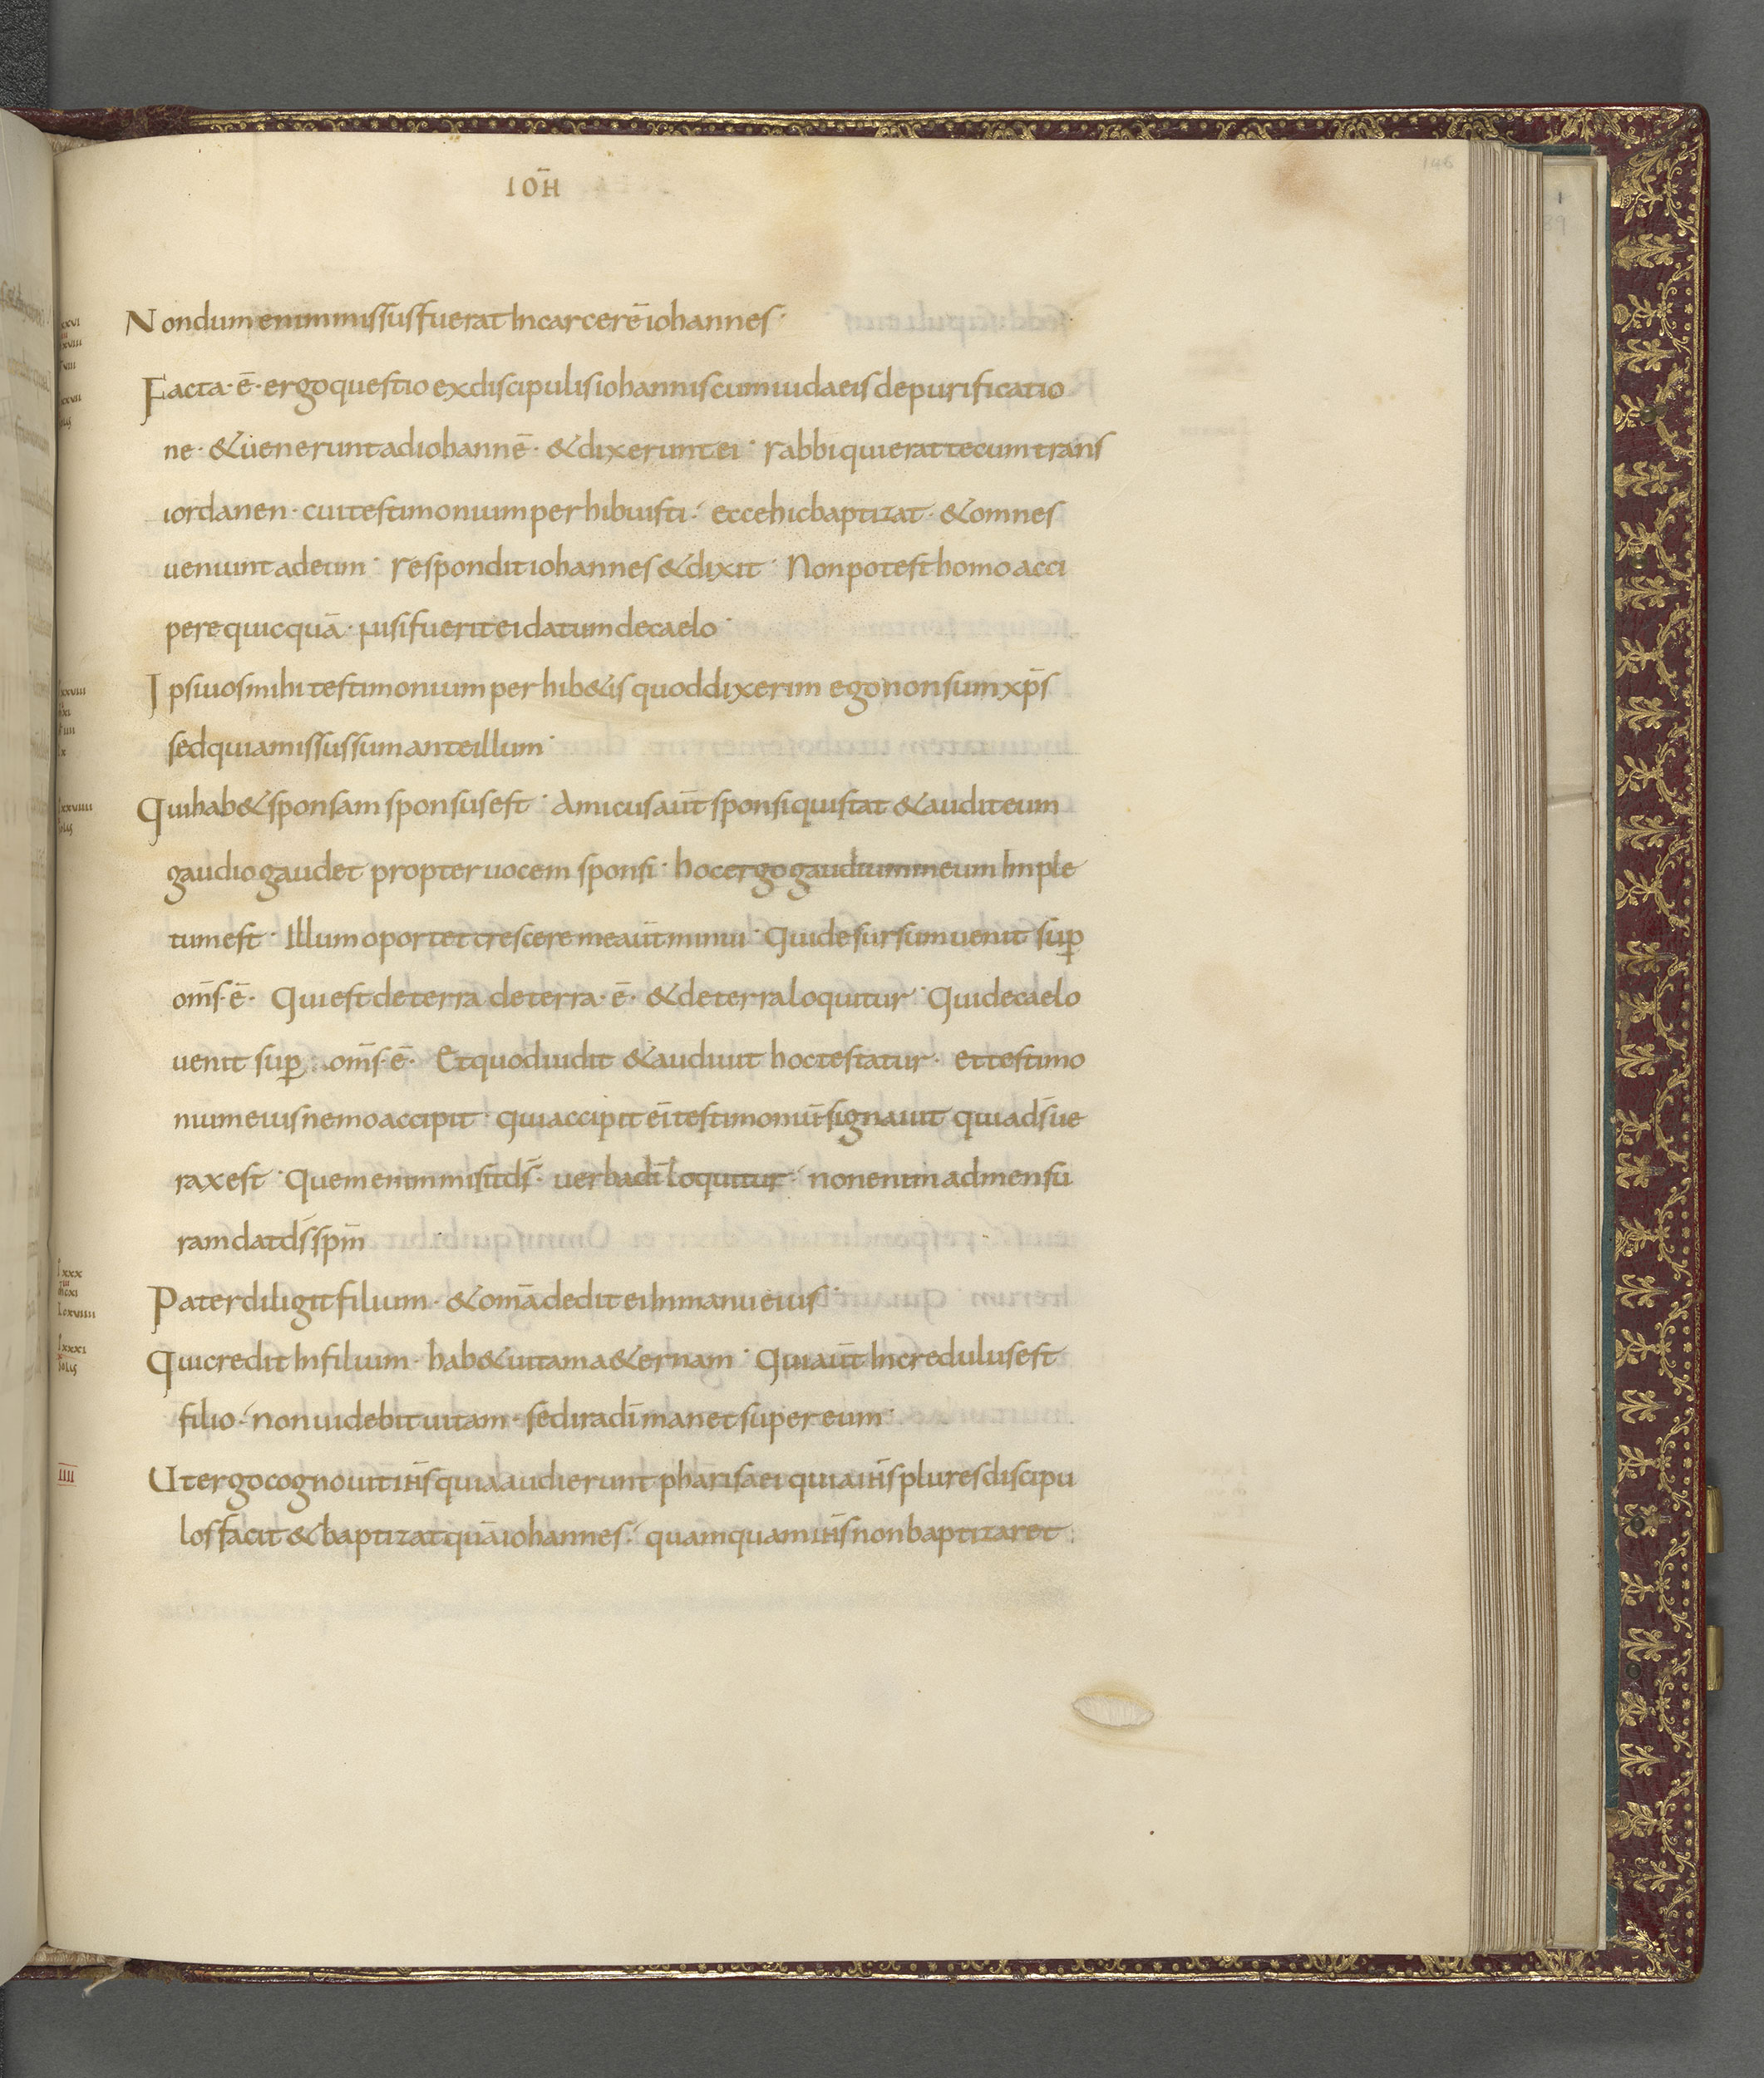 IOH̄
146
Nondum enim missus fuerat In carcerē iohannes·
Facta·ē·ergo questio ex discipulis iohannis cum iudaeis de purificatio
ne·&uenerunt ad iohannē·&dixerunt ei· rabbi qui erat tecum trans
iordanen·cui testimonium perhibuisti· ecce hic baptizat·&omnes
ueniunt ad eum· respondit iohannes &dixit· Non potest homo acci
pere quicquā·nisi fuerit ei datum de caelo·
Ipsi uos mihi testimonium perhib&is quod dixerim ego non sum xp̄s
sed quia missus sum ante illum·
Qui hab& sponsam sponsus est· Amicus aūt sponsi qui stat &audit eum
gaudio gaudet propter uocem sponsi· hoc ergo gaudium meum Imple
tum est· Illum oportet crescere me aūt minui· Qui de sursum uenit sup̱
om̄s·ē· Qui est de terra de terra·ē·&de terra loquitur· Qui de caelo
uenit sup̱ om̄s·ē· Et quod uidit &audiuit hoc testatur· et testimo
nium eius nemo accipit· qui accipit ei testimoniū signauit quia ds̄ ue
rax est· Quem enim misit ds̄· uerba dī loquitur· non enim ad mensu
ram dat ds̄ sp̄m
Pater diligit filium·&om̄a dedit ei In manu eius·
Qui credit In filium· hab& uitam a&ernam· Qui aūt Incredulus est
filio· non uidebit uitam· sed ira dī manet super eum·
Ut ergo cognouit ih̄s quia audierunt pharisaei quia ih̄s plures discipu
los facit &baptizat quā iohannes· quamquam ih̄s non baptizaret
IIII
1
89